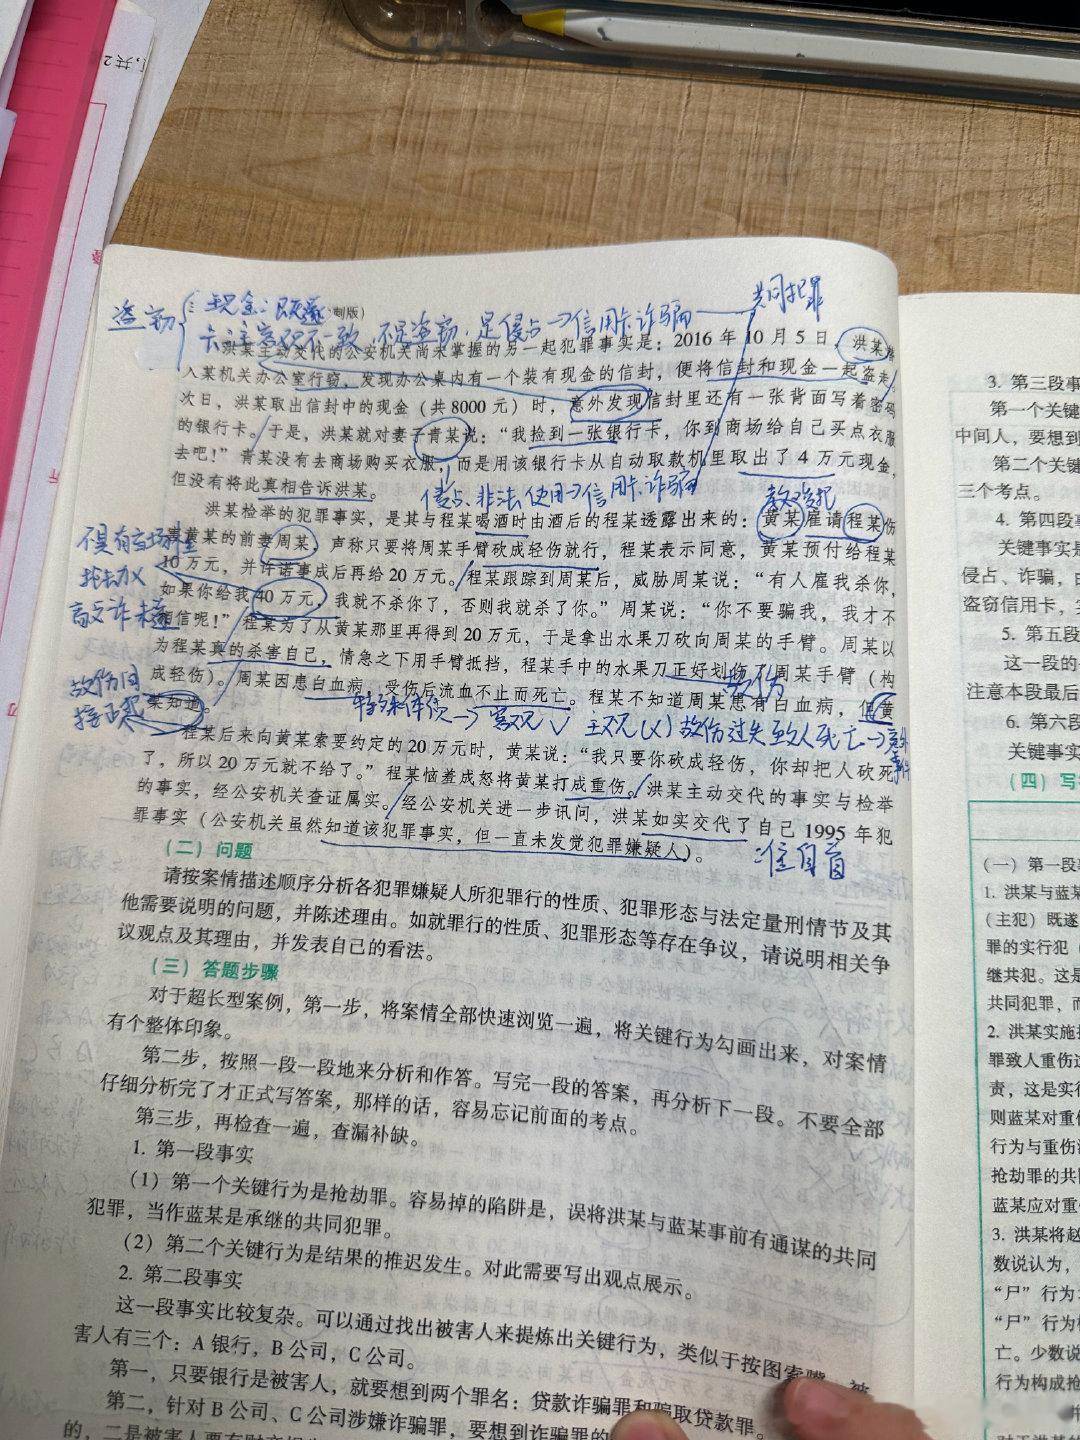 盗窃
现金：既遂
制版）
卡：主客观不一致，不是盗窃，是侵占→信用卡诈骗
共同犯罪
洪某主动交代的公安机关尚未掌握的另一起犯罪事实是：2016 年 10 月 5 日，洪某
入某机关办公室行窃，发现办公桌内有一个装有现金的信封，便将信封和现金一起盗走。
次日，洪某取出信封中的现金（共 8000 元）时，意外发现信封里还有一张背面写着密码
的银行卡。于是，洪某就对妻子青某说：“我捡到一张银行卡，你到商场给自己买点衣服
去吧！”青某没有去商场购买衣服，而是用该银行卡从自动取款机里取出了 4 万元现金，
但没有将此真相告诉洪某。
侵占、非法使用→信用卡诈骗
教唆犯
洪某检举的犯罪事实，是其与程某喝酒时由酒后的程某透露出来的：黄某雇请程某伤
害黄某的前妻周某，声称只要将周某手臂砍成轻伤就行，程某表示同意，黄某预付给程某
10 万元，并许诺事成后再给 20 万元。程某跟踪到周某后，威胁周某说：“有人雇我杀你，
如果你给我 40 万元，我就不杀你了，否则我就杀了你。”周某说：“你不要骗我，我才不
相信呢！”程某为了从黄某那里再得到 20 万元，于是拿出水果刀砍向周某的手臂。周某以
为程某真的杀害自己，情急之下用手臂抵挡，程某手中的水果刀正好划伤了周某手臂（构
成轻伤）。周某因患白血病，受伤后流血不止而死亡。程某不知道周某患有白血病，但黄
某知道。
不具有当场性
抢劫×
敲诈未遂
故伤间
接正犯
特殊体质→客观√ 主观(×) 故伤 过失致人死亡→意外
事件
程某后来向黄某索要约定的 20 万元时，黄某说：“我只要你砍成轻伤，你却把人砍死
了，所以 20 万元就不给了。”程某恼羞成怒将黄某打成重伤。洪某主动交代的事实与检举
的事实，经公安机关查证属实。经公安机关进一步讯问，洪某如实交代了自己 1995 年犯
罪事实（公安机关虽然知道该犯罪事实，但一直未发觉犯罪嫌疑人）。
准自首
（二）问题
请按案情描述顺序分析各犯罪嫌疑人所犯罪行的性质、犯罪形态与法定量刑情节及其
他需要说明的问题，并陈述理由。如就罪行的性质、犯罪形态等存在争议，请说明相关争
议观点及其理由，并发表自己的看法。
（三）答题步骤
对于超长型案例，第一步，将案情全部快速浏览一遍，将关键行为勾画出来，对案情
有个整体印象。
第二步，按照一段一段地来分析和作答。写完一段的答案，再分析下一段。不要全部
仔细分析完了才正式写答案，那样的话，容易忘记前面的考点。
第三步，再检查一遍，查漏补缺。
1. 第一段事实
（1）第一个关键行为是抢劫罪。容易掉的陷阱是，误将洪某与蓝某事前有通谋的共同
犯罪，当作蓝某是承继的共同犯罪。
（2）第二个关键行为是结果的推迟发生。对此需要写出观点展示。
2. 第二段事实
这一段事实比较复杂。可以通过找出被害人来提炼出关键行为，类似于按图索骥。被
害人有三个：A 银行，B 公司，C 公司。
第一，只要银行是被害人，就要想到两个罪名：贷款诈骗罪和骗取贷款罪。
第二，针对 B 公司、C 公司涉嫌诈骗罪，要想到诈骗罪的
3. 第三段事
第一个关键
中间人，要想到
第二个关键
三个考点。
4. 第四段事
关键事实是
侵占、诈骗，
盗窃信用卡，
5. 第五段
这一段的
注意本段最后
6. 第六段
关键事实
（四）写
（一）第一段
1. 洪某与蓝某
（主犯）既遂
罪的实行犯
继共犯。这是
共同犯罪，而
2. 洪某实施
罪致人重伤
责，这是实行
则蓝某对重伤
行为与重伤
抢劫罪的共
蓝某应对重
3. 洪某将赵
数说认为，
“尸”行为
“尸”行为
亡。少数说
行为构成抢